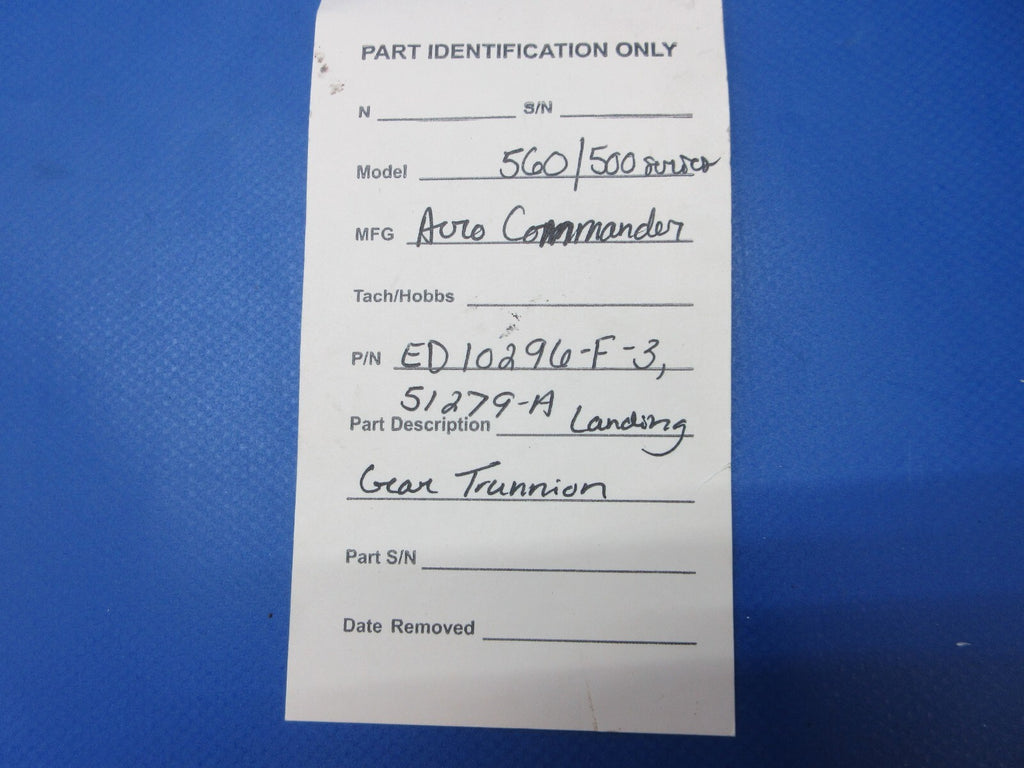 PART IDENTIFICATION ONLY
N S/N
Model 560/500 series
MFG Aero Commander
Tach/Hobbs
P/N ED10296-F-3,
51279-A
Part Description Landing
Gear Trunnion
Part S/N
Date Removed